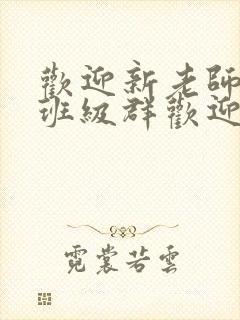 歡迎新老師
班級群歡迎
霓裳若雲